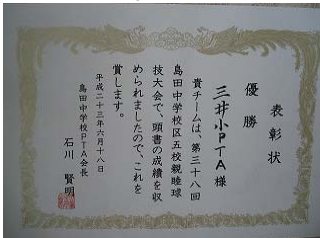 表彰状
優勝
三井小PTA様
貴チームは、第三十八回
島田中学校区五校親睦球
技大会で、頭書の成績を収
められましたので、これを
賞します。
平成二十三年六月十八日
島田中学校PTA会長
石川 賢明